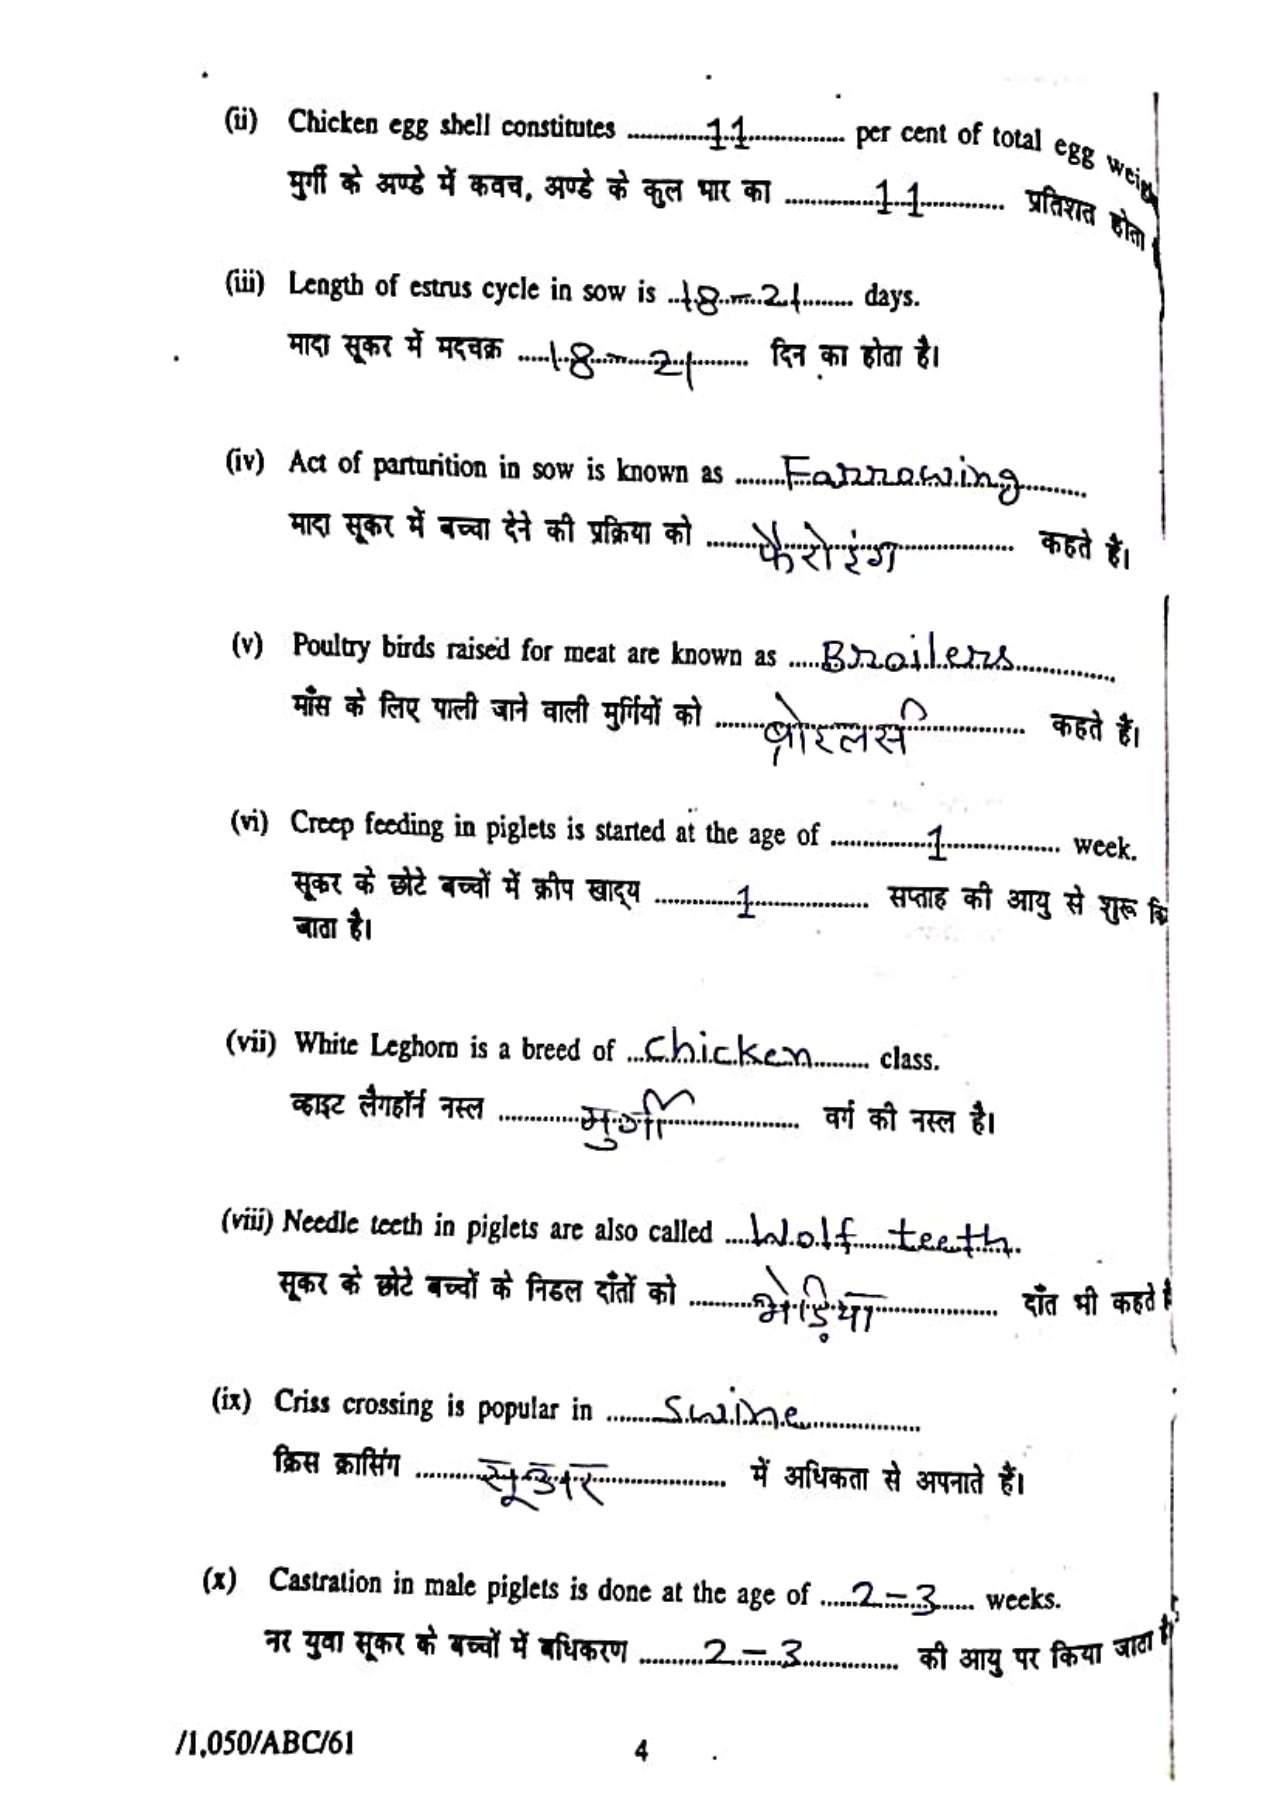 (ii) Chicken egg shell constitutes ..........11.......... per cent of total egg
मुर्गी के अण्डे में कवच, अण्डे के कुल भार का ..........11.......... प्रतिशत होता
(iii) Length of estrus cycle in sow is ..18-21........ days.
मादा सूकर में मदचक्र .....18-21........ दिन का होता है।
(iv) Act of parturition in sow is known as ........Farrowing........
मादा सूकर में बच्चा देने की प्रक्रिया को ........फैरोइंग........ कहते हैं।
(v) Poultry birds raised for meat are known as .....Broilers........
माँस के लिए पाली जाने वाली मुर्गियों को ........ब्रोइलर्स........ कहते हैं।
(vi) Creep feeding in piglets is started at the age of ..........1.......... week.
सूकर के छोटे बच्चों में क्रीप खाद्य ..........1.......... सप्ताह की आयु से शुरू
जाता है।
(vii) White Leghorn is a breed of ...chicken........ class.
व्हाइट लैगहॉर्न नस्ल ..........मुर्गी.......... वर्ग की नस्ल है।
(viii) Needle teeth in piglets are also called ....Wolf teeth.
सूकर के छोटे बच्चों के निडल दाँतों को ........भेड़िया........ दाँत भी कहते
(ix) Criss crossing is popular in ........swine........
क्रिस क्रासिंग ........सूअर........ में अधिकता से अपनाते हैं।
(x) Castration in male piglets is done at the age of .....2-3..... weeks.
नर युवा सूकर के बच्चों में बधिकरण ........2-3........ की आयु पर किया जाता है
/1,050/ABC/61
4